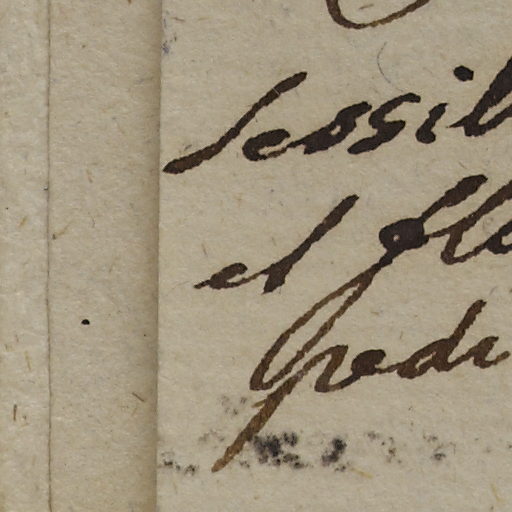 sessil
et fle
pedi